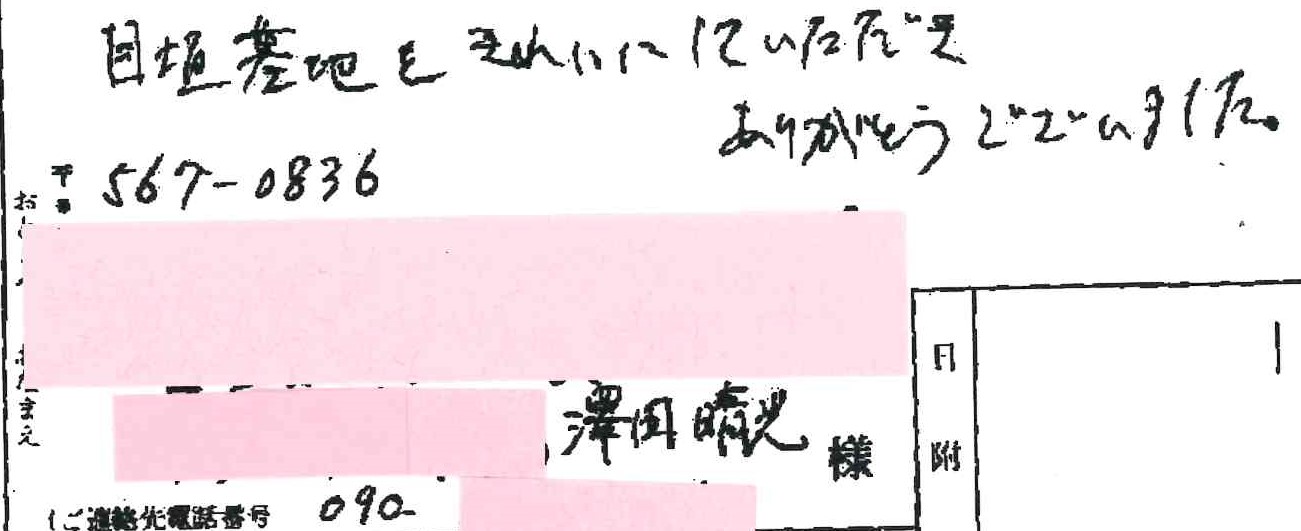 目垣墓地をきれいにしていただき
ありがとうございました。
〒 567-0836
おところ おなまえ
澤田晴光 様
日附
(ご連絡先電話番号 090-